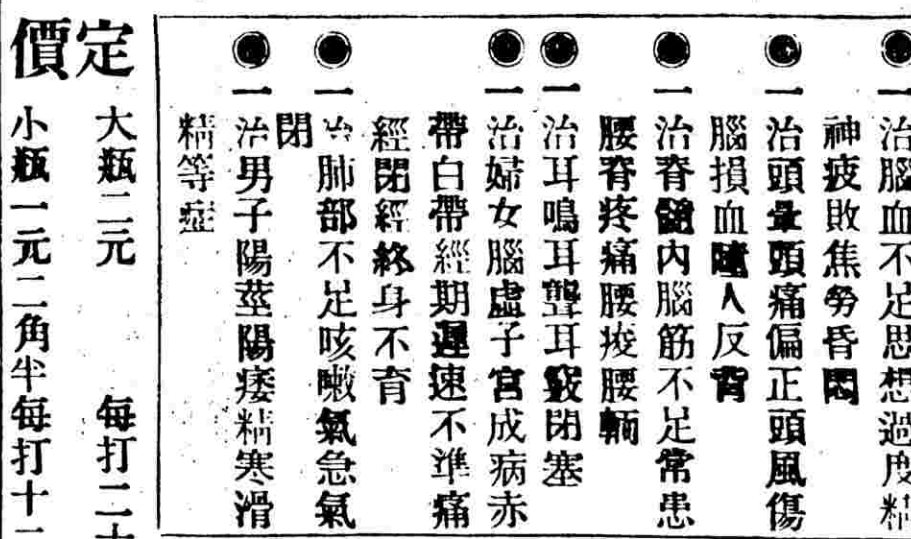 一治腦血不足思想過度精
神疲敗焦勞昏悶
一治頭暈頭痛偏正頭風傷
腦損血 人反背
一治脊髓內腦筋不足常患
腰脊疼痛腰痠腰
一治耳鳴耳聾耳竅閉塞
一治婦女腦虛子宮成病赤
帶白帶經期遲速不準痛
經閉經終身不育
一治肺部不足咳嗽氣急氣
閉
一治男子陽莖陽痿精寒滑
精等症
定價
大瓶二元 每打二十
小瓶一元二角半每打十二